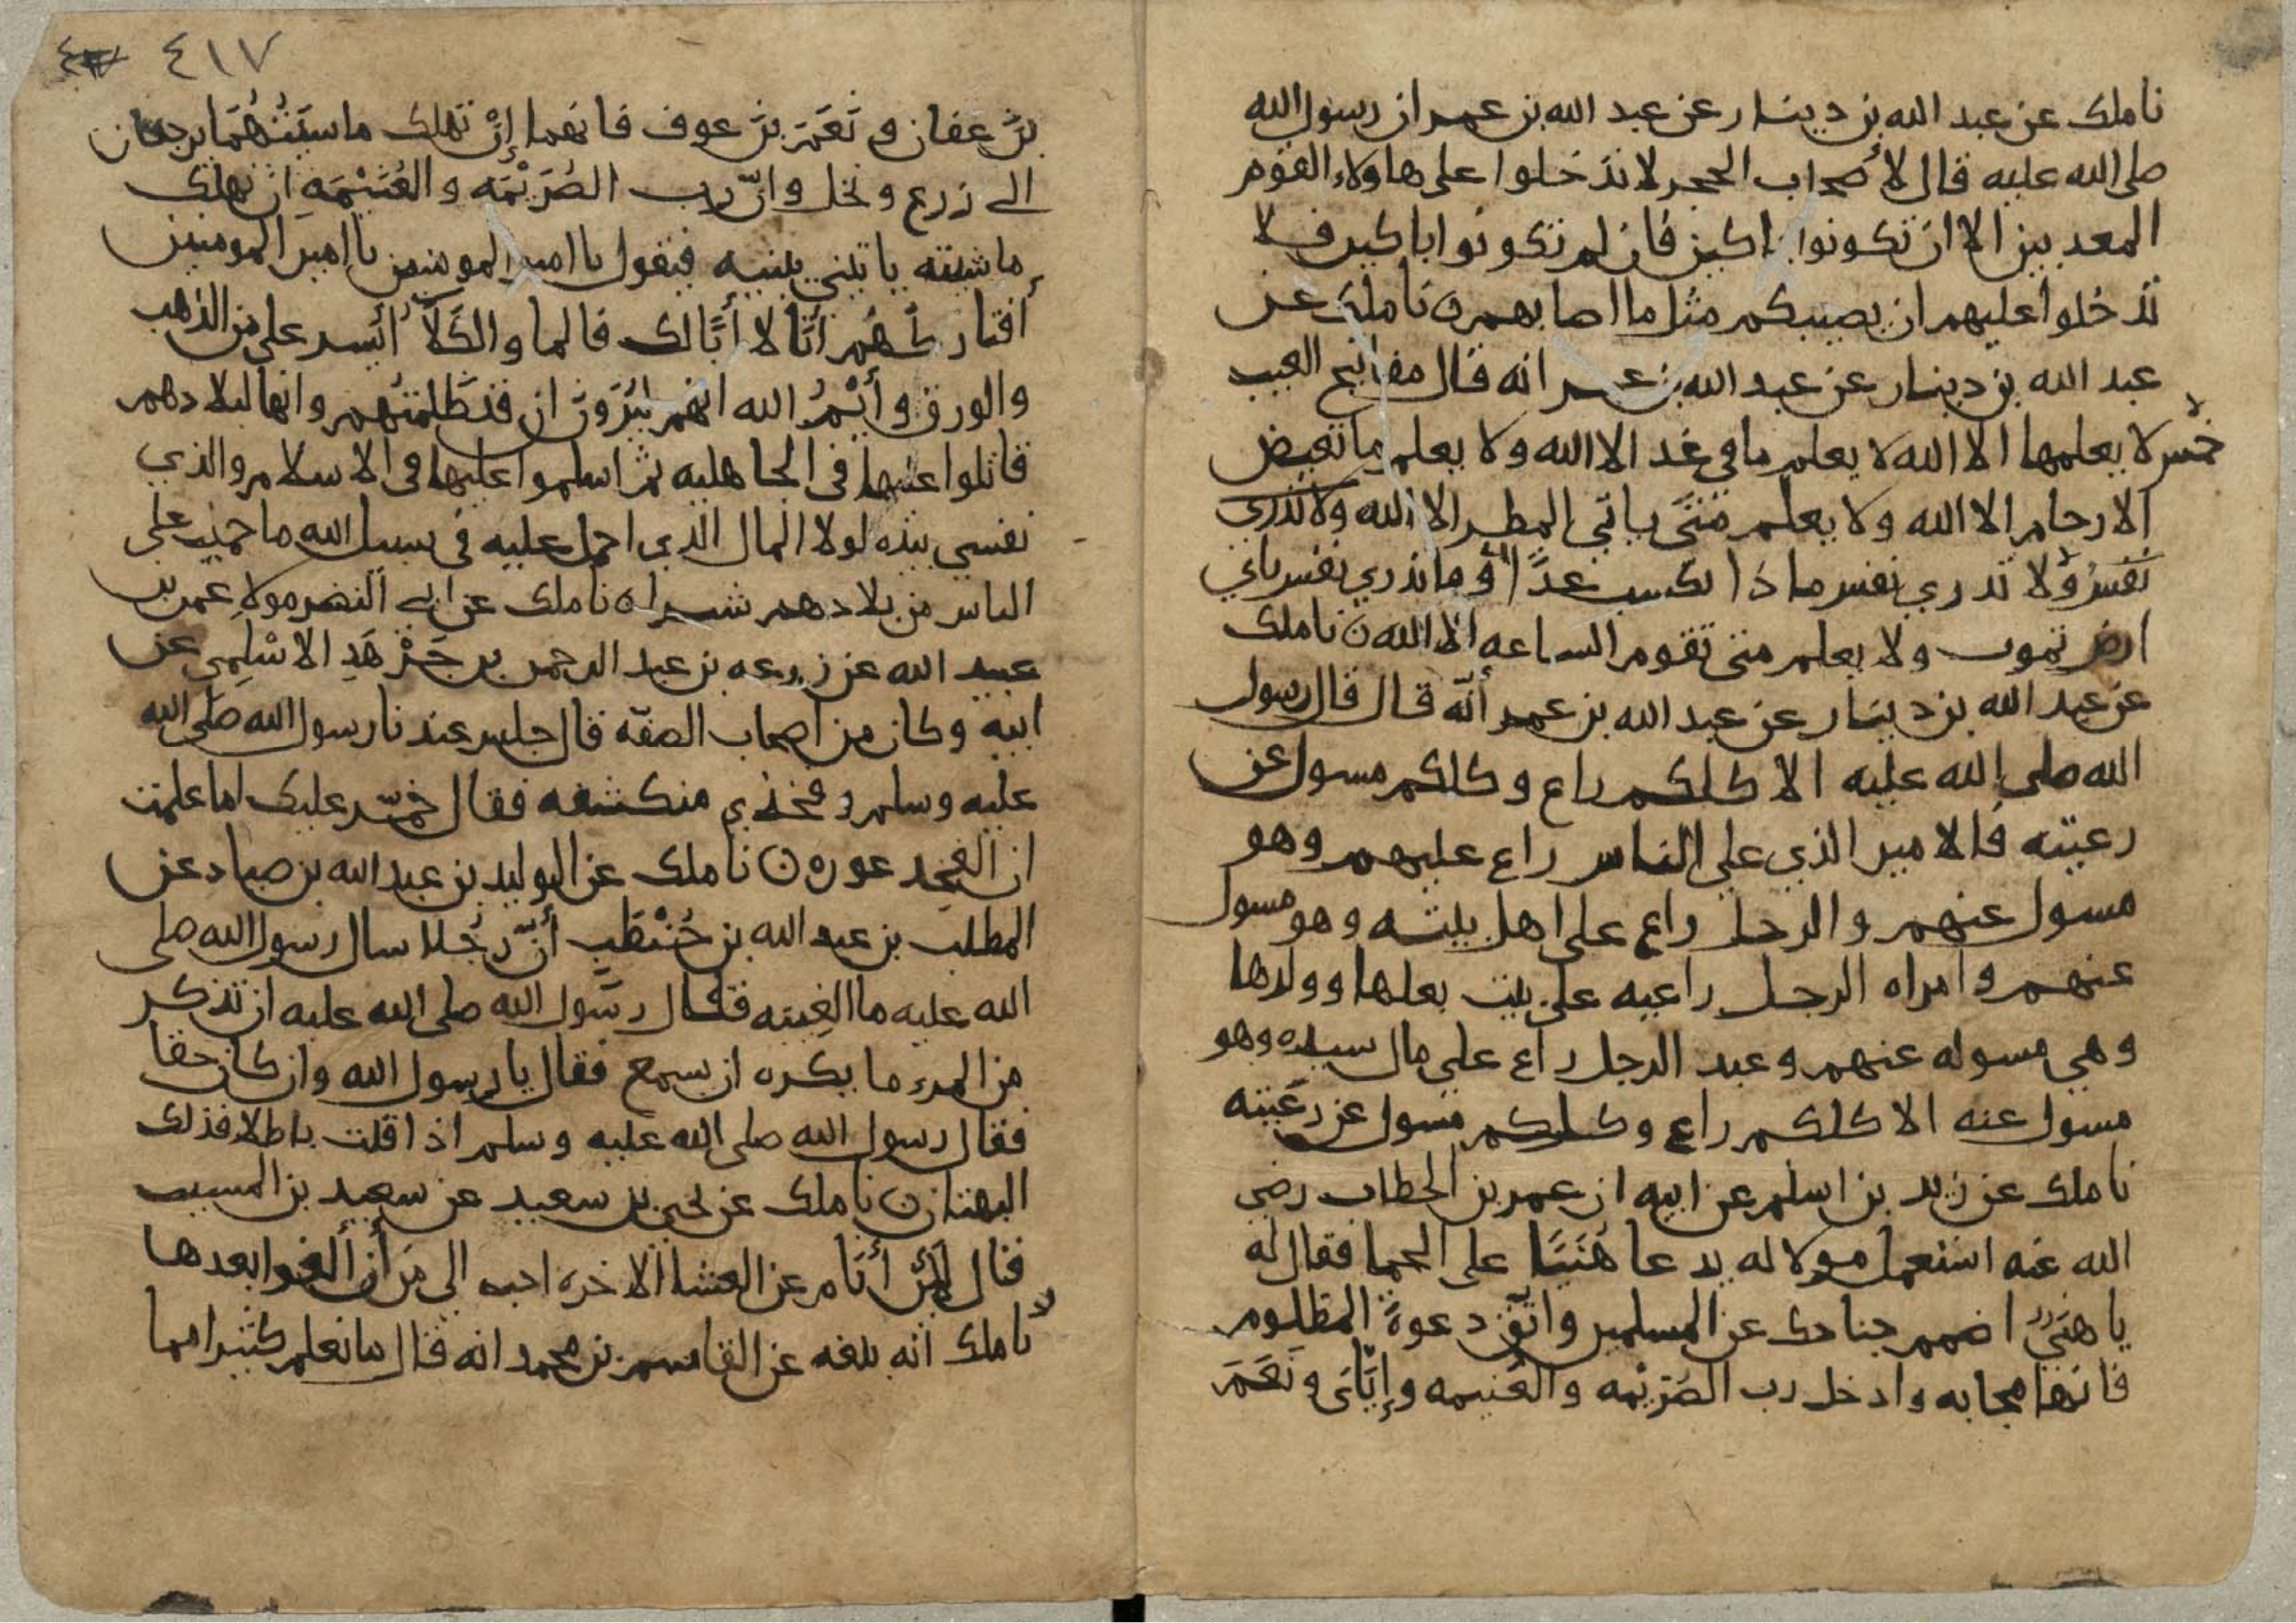 نا ملك عن عبد الله بن دينار عن عبد الله بن عمر ان رسول الله
صلى الله عليه قال لأصحاب الحجر لا تدخلوا على هاولاء القوم
المعذبين الا ان تكونوا باكين فان لم تكونوا باكين فلا
تدخلوا عليهم ان يصيبكم مثل ما اصابهم ن نا ملك عن
عبد الله بن دينار عن عبد الله بن عمر انه قال مفاتيح الغيب
خمس لا يعلمها الا الله لا يعلم ما في غد الا الله ولا يعلم ما تغيض
الارحام الا الله ولا يعلم متى ياتي المطر الا الله ولا تدري
نفس ولا تدري نفس ماذا تكسب غدًا وما تدري نفس باي
ارض تموت ولا يعلم متى تقوم الساعه الا الله ن نا ملك
عن عبد الله بن دينار عن عبد الله بن عمر أنّه قال قال رسول
الله صلى الله عليه الا كلكم راع وكلكم مسول عن
رعيته فالامير الذي على الناس راع عليهم وهو
مسول عنهم والرجل راع على اهل بيته وهو مسول
عنهم وامراه الرجل راعيه على بيت بعلها وولدها
وهي مسوله عنهم وعبد الرجل راع على مال سيده وهو
مسول عنه الا كلكم راع وكلكم مسول عن رعيته
نا ملك عن زيد بن اسلم عن ابيه ان عمر بن الخطاب رضي
الله عنه استعمل مولا له يدعا هُنَيًا على الحما فقال له
يا هنيّ اضمم جناحك عن المسلمين واتّق دعوة المظلوم
فانها مجابه وادخل رب الصُرَيْمه والغُنيمه وإيّاي ونَعَمَ
٤١٧
بن عفان ونَعَمَ بن عوف فانهما إنْ تهلك ماشيتُهُما يرجعان
الى زرع ونخل وانّ رب الصُرَيْمَه والغُنَيْمَه ان تهلك
ماشيته ياتيني ببنيه فيقول يا امير المومنين يا امير المومنين
أفتاركهُم أنَا لا أبَا لك فالما والكَلأُ أيْسر علي من الذهب
والورق وأيْمُ الله انهم ليُرَوْنَ ان قد ظَلمتُهم وانها لبلادهم
قاتلوا عليها في الجاهليه ثم اسلموا عليها في الاسلام والذي
نفسي بيده لولا المال الذي احمل عليه في سبيل الله ما حميت على
الناس من بلادهم شبرا ه نا ملك عن ابي النضر مولا عمر بن
عبيد الله عن زرعه بن عبد الرحمن بن جَرْهَدِ الاسْلِمي عن
ابيه وكان من اصحاب الصفّه قال جلس عندنا رسول الله صلى الله
عليه وسلم وفخذي منكشفه فقال خمّر عليك اما علمت
ان الفخِذ عوره ن نا ملك عن الوليد بن عبد الله بن صياد عن
المطلب بن عبد الله بن حُنْطَبٍ أنّ رجُلا سال رسول الله صلى
الله عليه ما الغِيبَه فقال رسول الله صلى الله عليه ان تذكر
من المرء ما يكره ان يسمع فقال يا رسول الله وان كان حقا
فقال رسول الله صلى الله عليه وسلم اذا قلت باطلا فذلك
البهتان ن نا ملك عن يحيى بن سعيد عن سعيد بن المسيب
قال لئن أنَام عن العشا الاخره احب الي من أن ألغوا بعدها
نا ملك انه بلغه عن القاسم بن محمد انه قال ما نعلم كثيرا مما